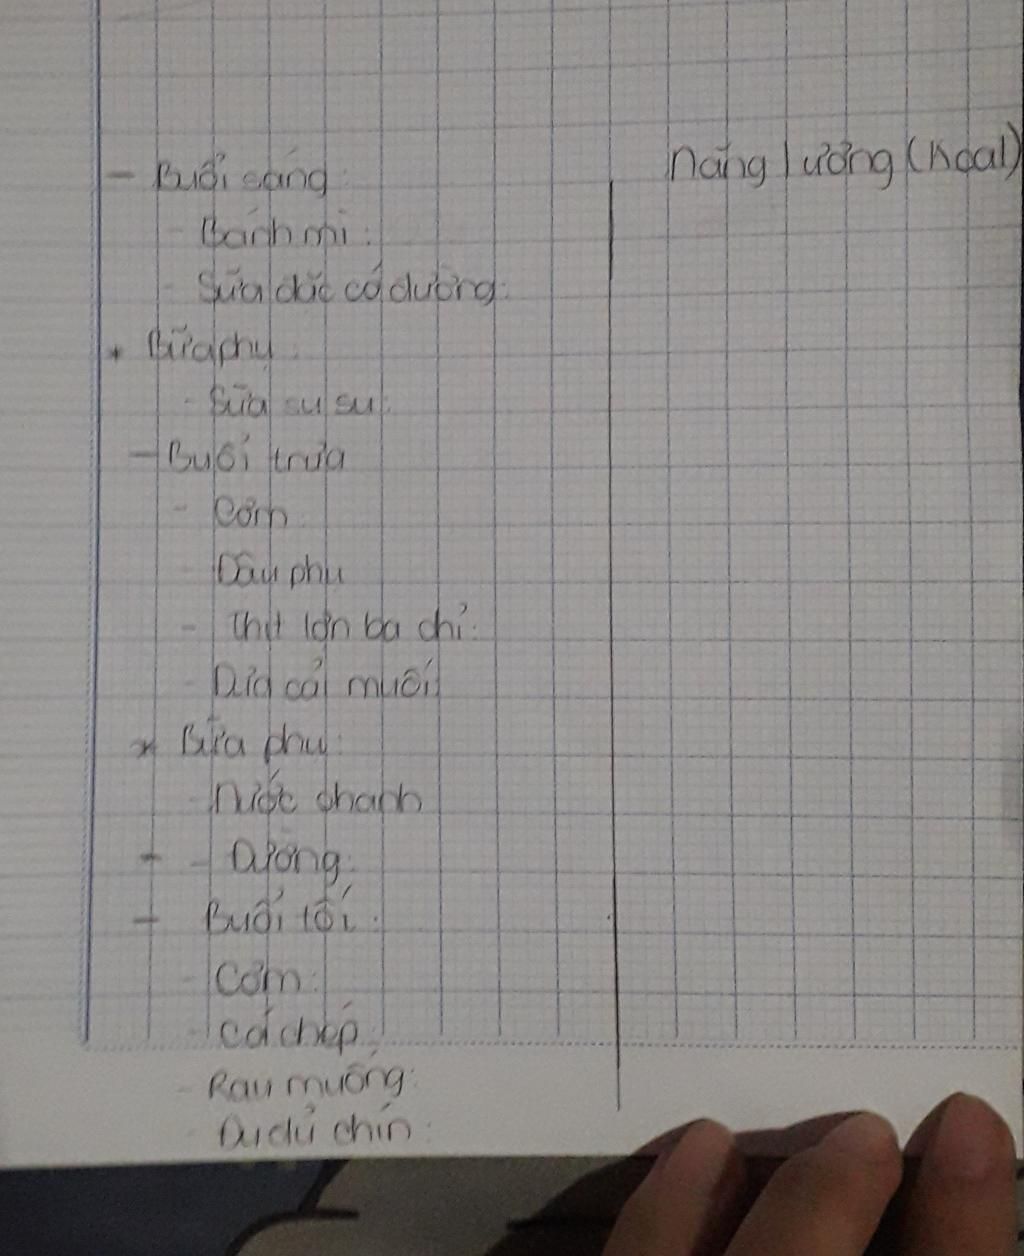 Năng lượng (Kcal)
- Buổi sáng:
- Bánh mì:
- Sữa đặc có đường:
* Bữa phụ:
- Sữa su su:
- Buổi trưa
- Cơm
- Đậu phụ
- Thịt lợn ba chỉ:
- Dưa cải muối
* Bữa phụ:
- Nước chanh
- Đường:
- Buổi tối:
- Cơm:
- Cá chép
- Rau muống:
Đu đủ chín: